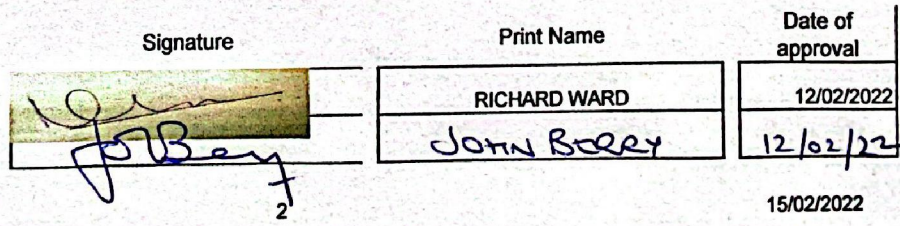 Signature Print Name Date of approval
RICHARD WARD 12/02/2022
JOHN BERRY 12/02/22
2 15/02/2022